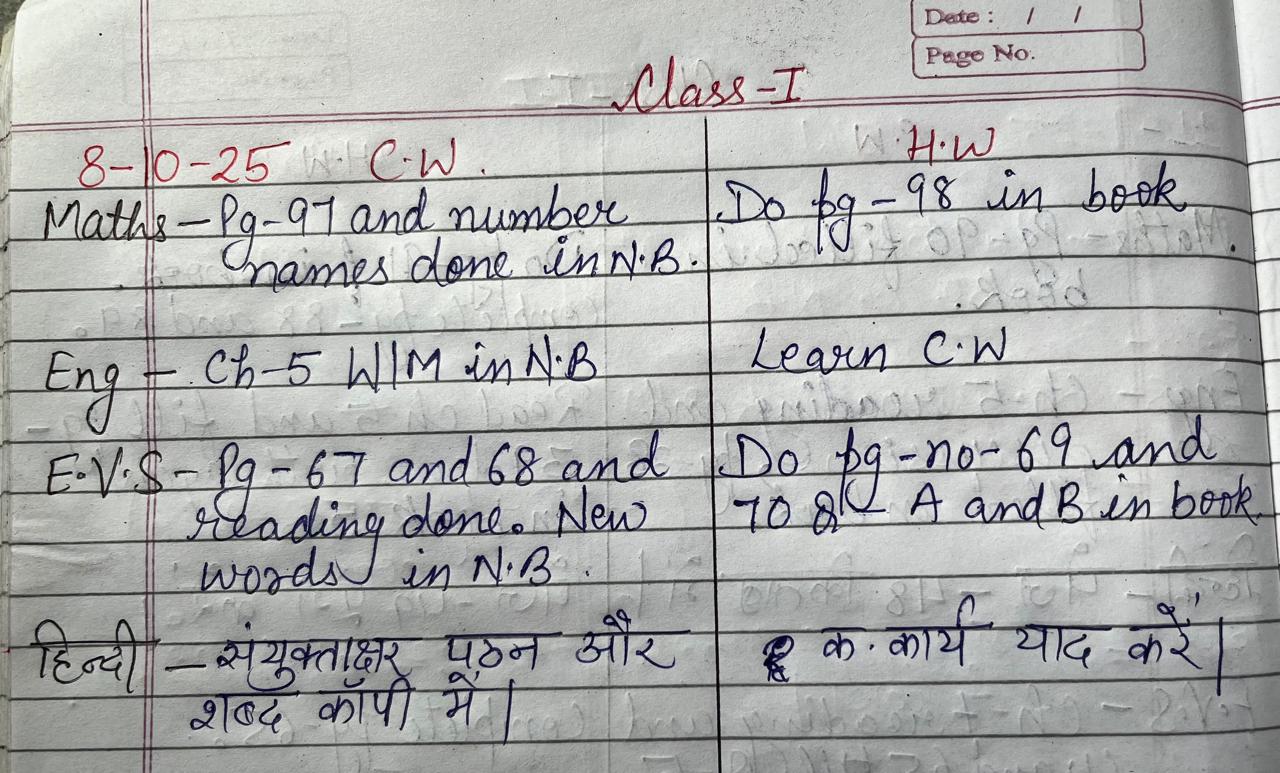 Date : / /
Page No.
Class-I
8-10-25 C.W. H.W
Maths - Pg-97 and number Do pg-98 in book.
names done in N.B.
Eng - Ch-5 W/M in N.B Learn C.W
E.V.S - Pg-67 and 68 and Do pg-no-69 and
reading done. New 70 A and B in book.
words in N.B.
हिन्दी - संयुक्ताक्षर पठन और क. कार्य याद करें।
शब्द कॉपी में।